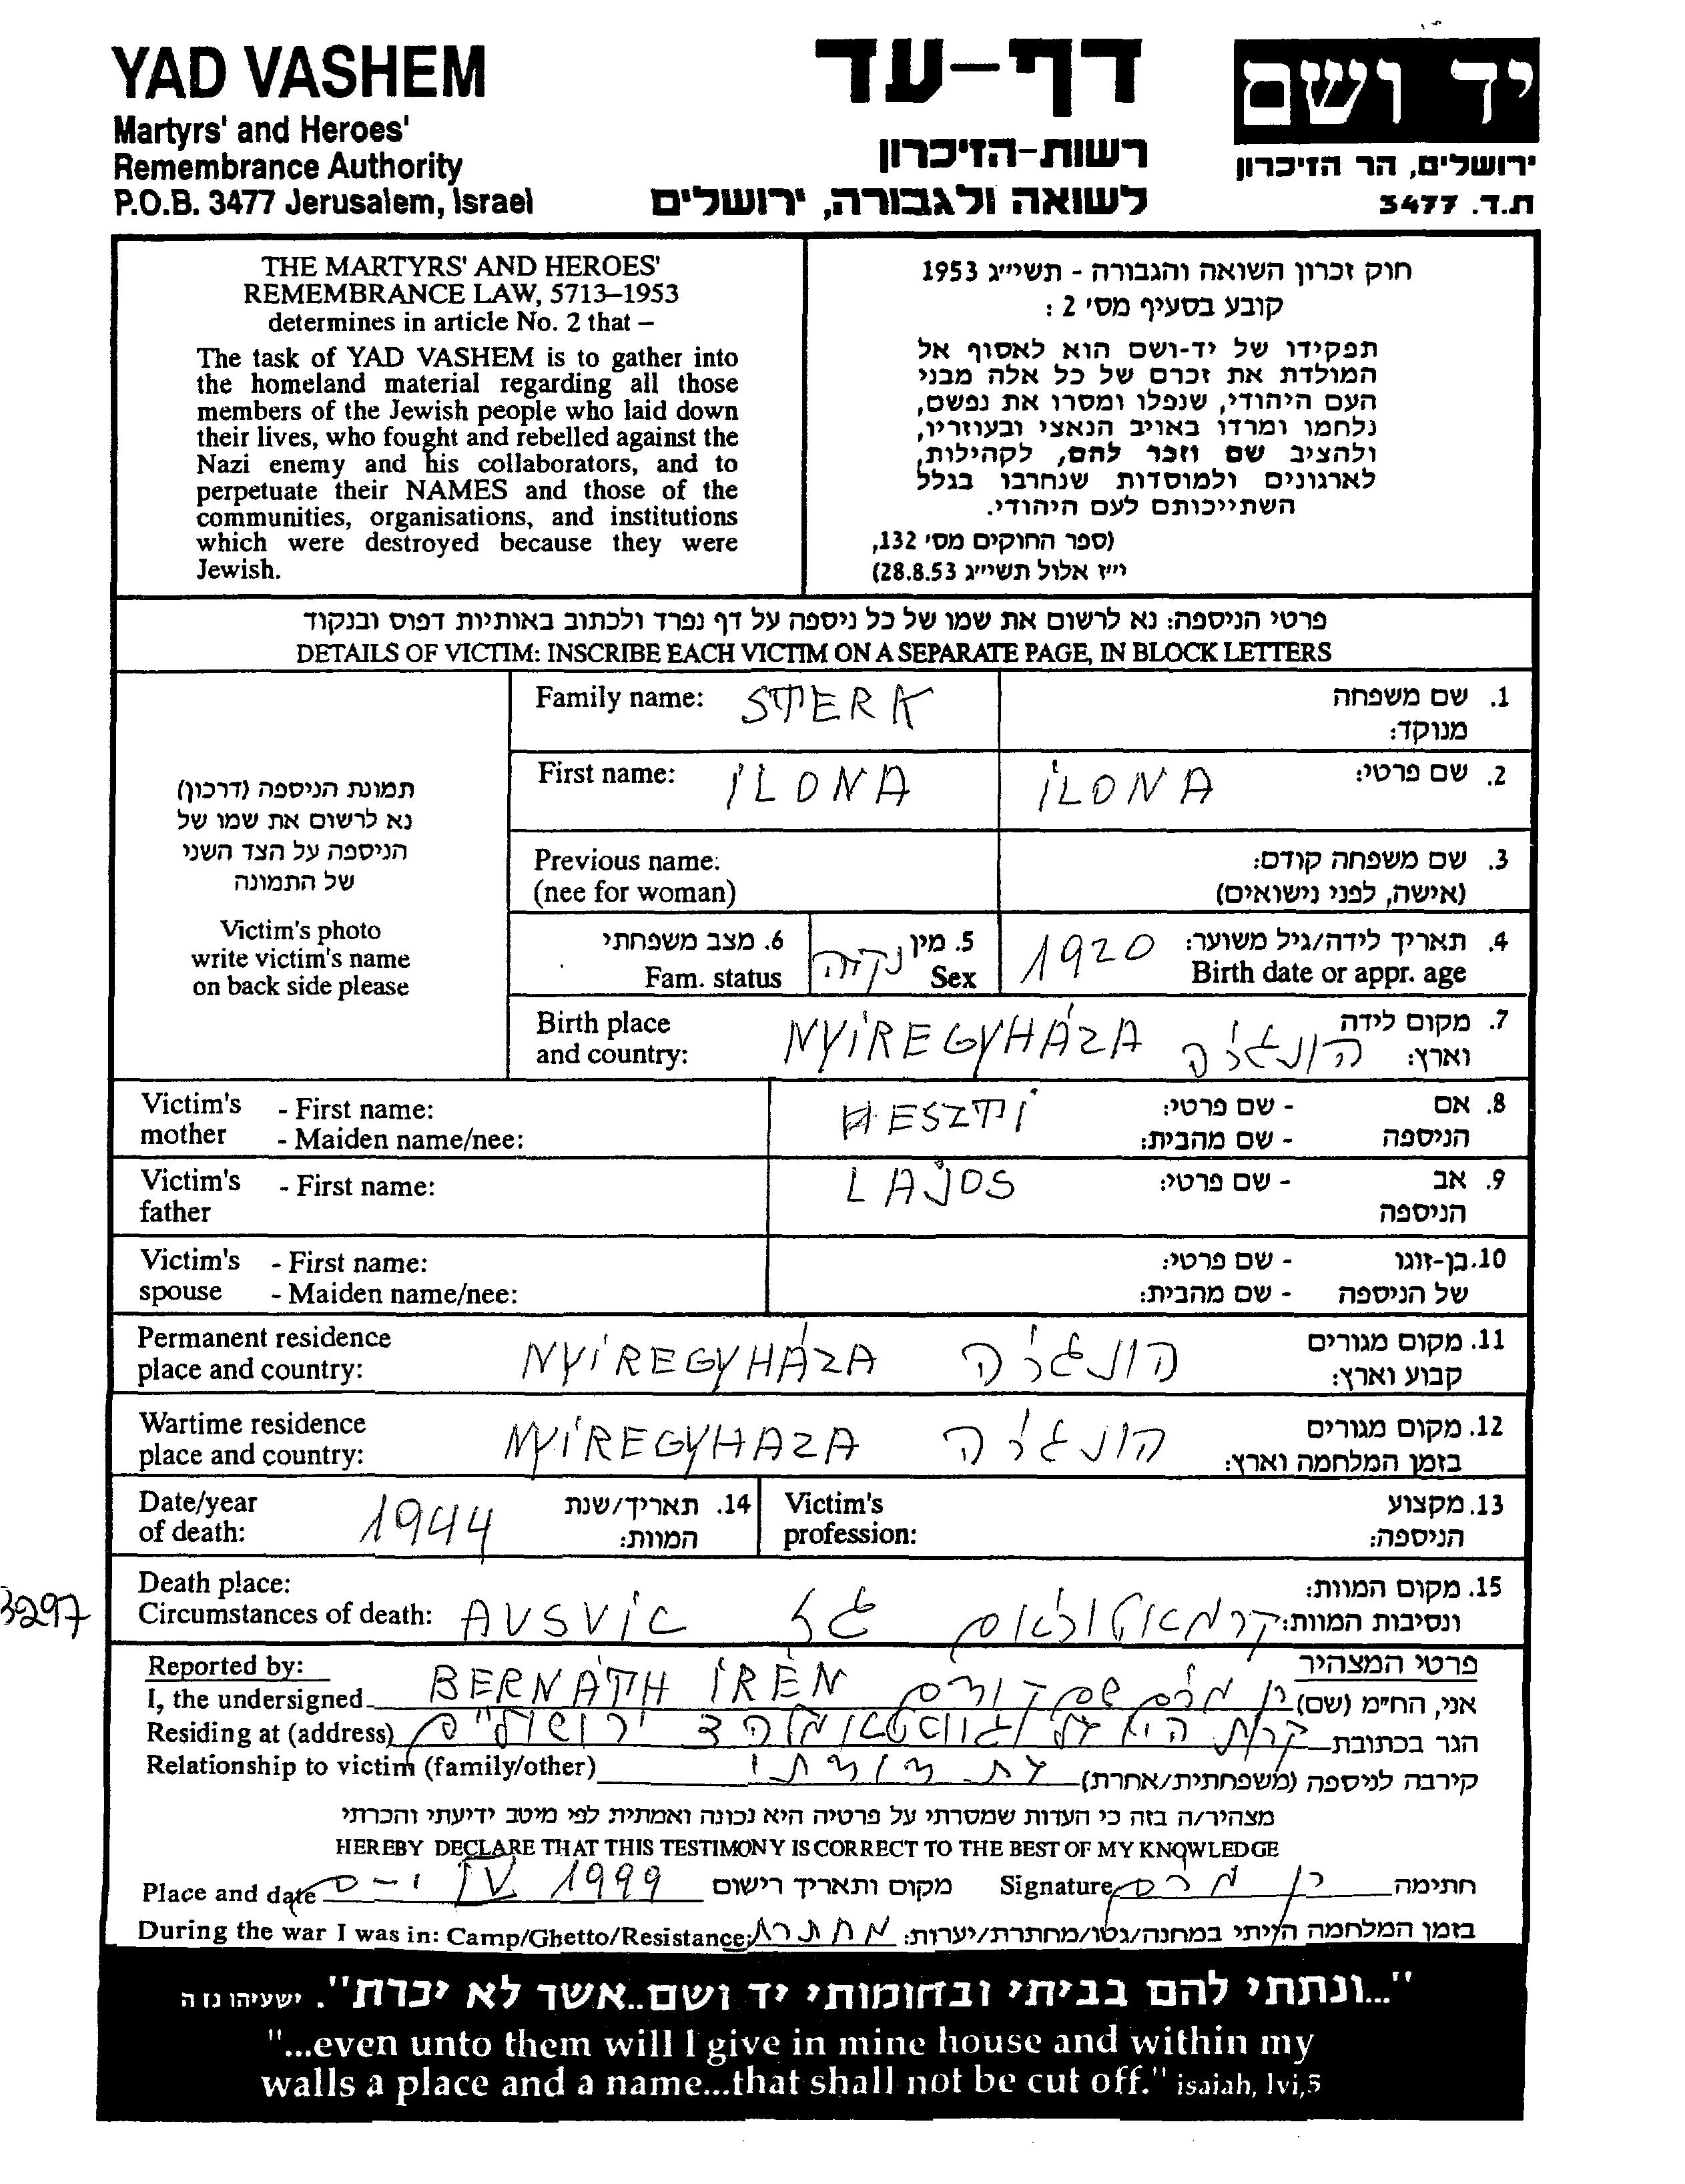 YAD VASHEM
Martyrs' and Heroes'
Remembrance Authority
P.O.B. 3477 Jerusalem, Israel
דף-עד
רשות-הזיכרון
לשואה ולגבורה, ירושלים
יד ושם
ירושלים, הר הזיכרון
ת.ד. 3477
THE MARTYRS' AND HEROES'
REMEMBRANCE LAW, 5713–1953
determines in article No. 2 that –
The task of YAD VASHEM is to gather into
the homeland material regarding all those
members of the Jewish people who laid down
their lives, who fought and rebelled against the
Nazi enemy and his collaborators, and to
perpetuate their NAMES and those of the
communities, organisations, and institutions
which were destroyed because they were
Jewish.
חוק זכרון השואה והגבורה - תשי״ג 1953
קובע בסעיף מס' 2 :
תפקידו של יד-ושם הוא לאסוף אל
המולדת את זכרם של כל אלה מבני
העם היהודי, שנפלו ומסרו את נפשם,
נלחמו ומרדו באויב הנאצי ובעוזריו,
ולהציב שם וזכר להם, לקהילות,
לארגונים ולמוסדות שנחרבו בגלל
השתייכותם לעם היהודי.
(ספר החוקים מס' 132,
י״ז אלול תשי״ג 28.8.53)
פרטי הניספה: נא לרשום את שמו של כל ניספה על דף נפרד ולכתוב באותיות דפוס ובנקוד
DETAILS OF VICTIM: INSCRIBE EACH VICTIM ON A SEPARATE PAGE, IN BLOCK LETTERS
תמונת הניספה (דרכון)
נא לרשום את שמו של
הניספה על הצד השני
של התמונה
Victim's photo
write victim's name
on back side please
Family name: STERK
1. שם משפחה
מנוקד:
First name: ILONA
ILONA 2. שם פרטי:
Previous name:
(nee for woman)
3. שם משפחה קודם:
(אישה, לפני נישואים)
6. מצב משפחתי
Fam. status
5. מין נקבה
Sex
4. תאריך לידה/גיל משוער: 1920
Birth date or appr. age
Birth place
and country: NYÍREGYHÁZA הונגריה
7. מקום לידה
וארץ:
Victim's - First name: HESZTI
mother - Maiden name/nee:
8. אם - שם פרטי:
הניספה - שם מהבית:
Victim's - First name: LAJOS
father
9. אב - שם פרטי:
הניספה
Victim's - First name:
spouse - Maiden name/nee:
10. בן-זוגו - שם פרטי:
של הניספה - שם מהבית:
Permanent residence
place and country: NYÍREGYHÁZA הונגריה
11. מקום מגורים
קבוע וארץ:
Wartime residence
place and country: NYÍREGYHAZA הונגריה
12. מקום מגורים
בזמן המלחמה וארץ:
Date/year
of death: 1944
14. תאריך/שנת
המוות:
Victim's
profession:
13. מקצוע
הניספה:
3297
Death place:
Circumstances of death: AUSVIC גז
15. מקום המוות:
ונסיבות המוות: קרמאטוריום
Reported by:
I, the undersigned BERNÁTH IRÉN
פרטי המצהיר
אני, הח״מ (שם)
Residing at (address) ירושלים
הגר בכתובת
Relationship to victim (family/other)
קירבה לניספה (משפחתית/אחרת) בת דודתי
מצהיר/ה בזה כי העדות שמסרתי על פרטיה היא נכונה ואמתית לפי מיטב ידיעתי והכרתי
HEREBY DECLARE THAT THIS TESTIMONY IS CORRECT TO THE BEST OF MY KNOWLEDGE
Place and date י-ם IV 1999 מקום ותאריך רישום Signature חתימה
During the war I was in: Camp/Ghetto/Resistance: מחתרת בזמן המלחמה הייתי במחנה/גטו/מחתרת/יערות:
"...ונתתי להם בביתי ובחומותי יד ושם..אשר לא יכרת". ישעיהו נו ה
"...even unto them will I give in mine house and within my
walls a place and a name...that shall not be cut off." isaiah, lvi,5